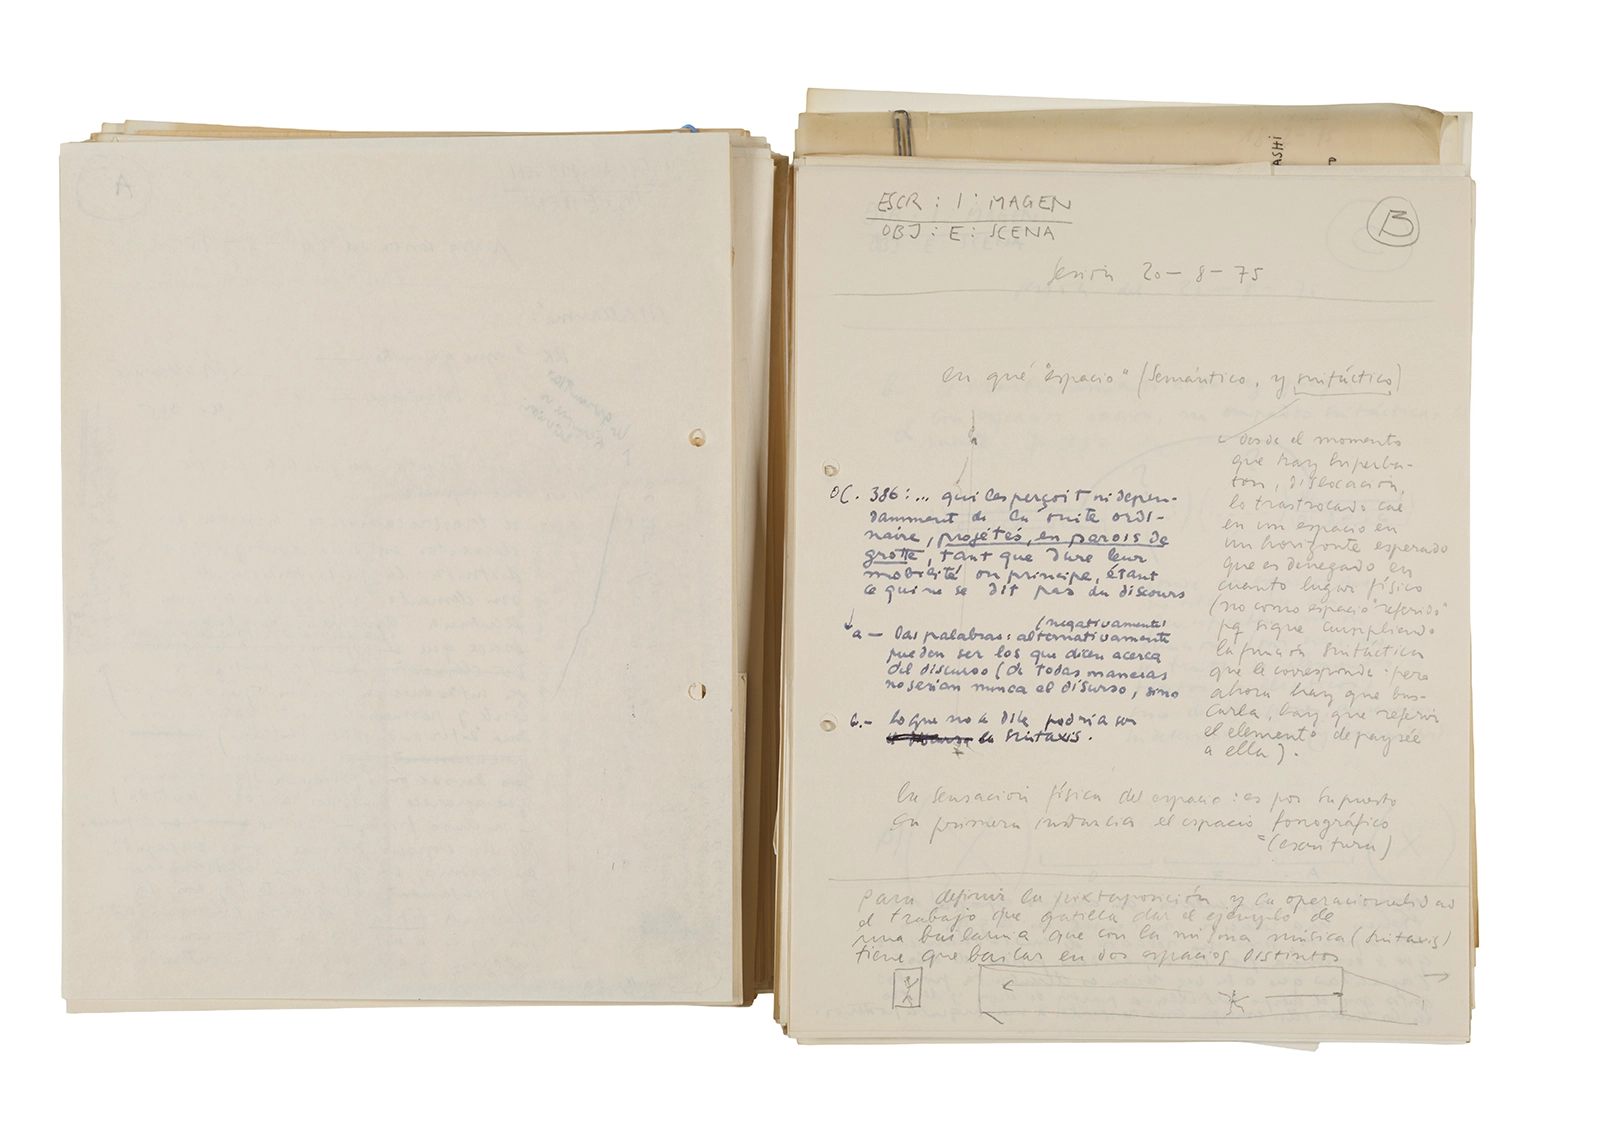 A
ASHI
P
ESCR : I : MAGEN
OBJ : E : SCENA
B
Sesión 20 - 8 - 75
en qué "espacio" (semántico, y sintáctico)
desde el momento
que hay hiperba-
ton, dislocación,
lo trastrocado cae
en un espacio en
un horizonte esperado
que es denegado en
cuanto lugar físico
(no como espacio "referido"
pq sigue cumpliendo
la función sintáctica
que le corresponde : pero
ahora hay que bus-
carla, hay que referir
el elemento depaysée
a ella).
OC. 386 : ... qui les perçoit indepen-
damment de la suite ordi-
naire, projétés, en parois de
grotte, tant que dure leur
mobilité ou principe, étant
ce qui ne se dit pas du discours
(negativamente)
a — las palabras : alternativamente
pueden ser los que dicen acerca
del discurso (de todas maneras
no serian nunca el discurso, sino
b. — lo que no se dice podría ser
la sintaxis.
la sensación física del espacio : es por supuesto
en primera instancia el espacio fonográfico
= (escritura)
para definir la juxtaposición y la operacionalidad
el trabajo que gatilla dar el ejemplo de
una bailarina que con la misma música (sintaxis)
tiene que bailar en dos espacios distintos